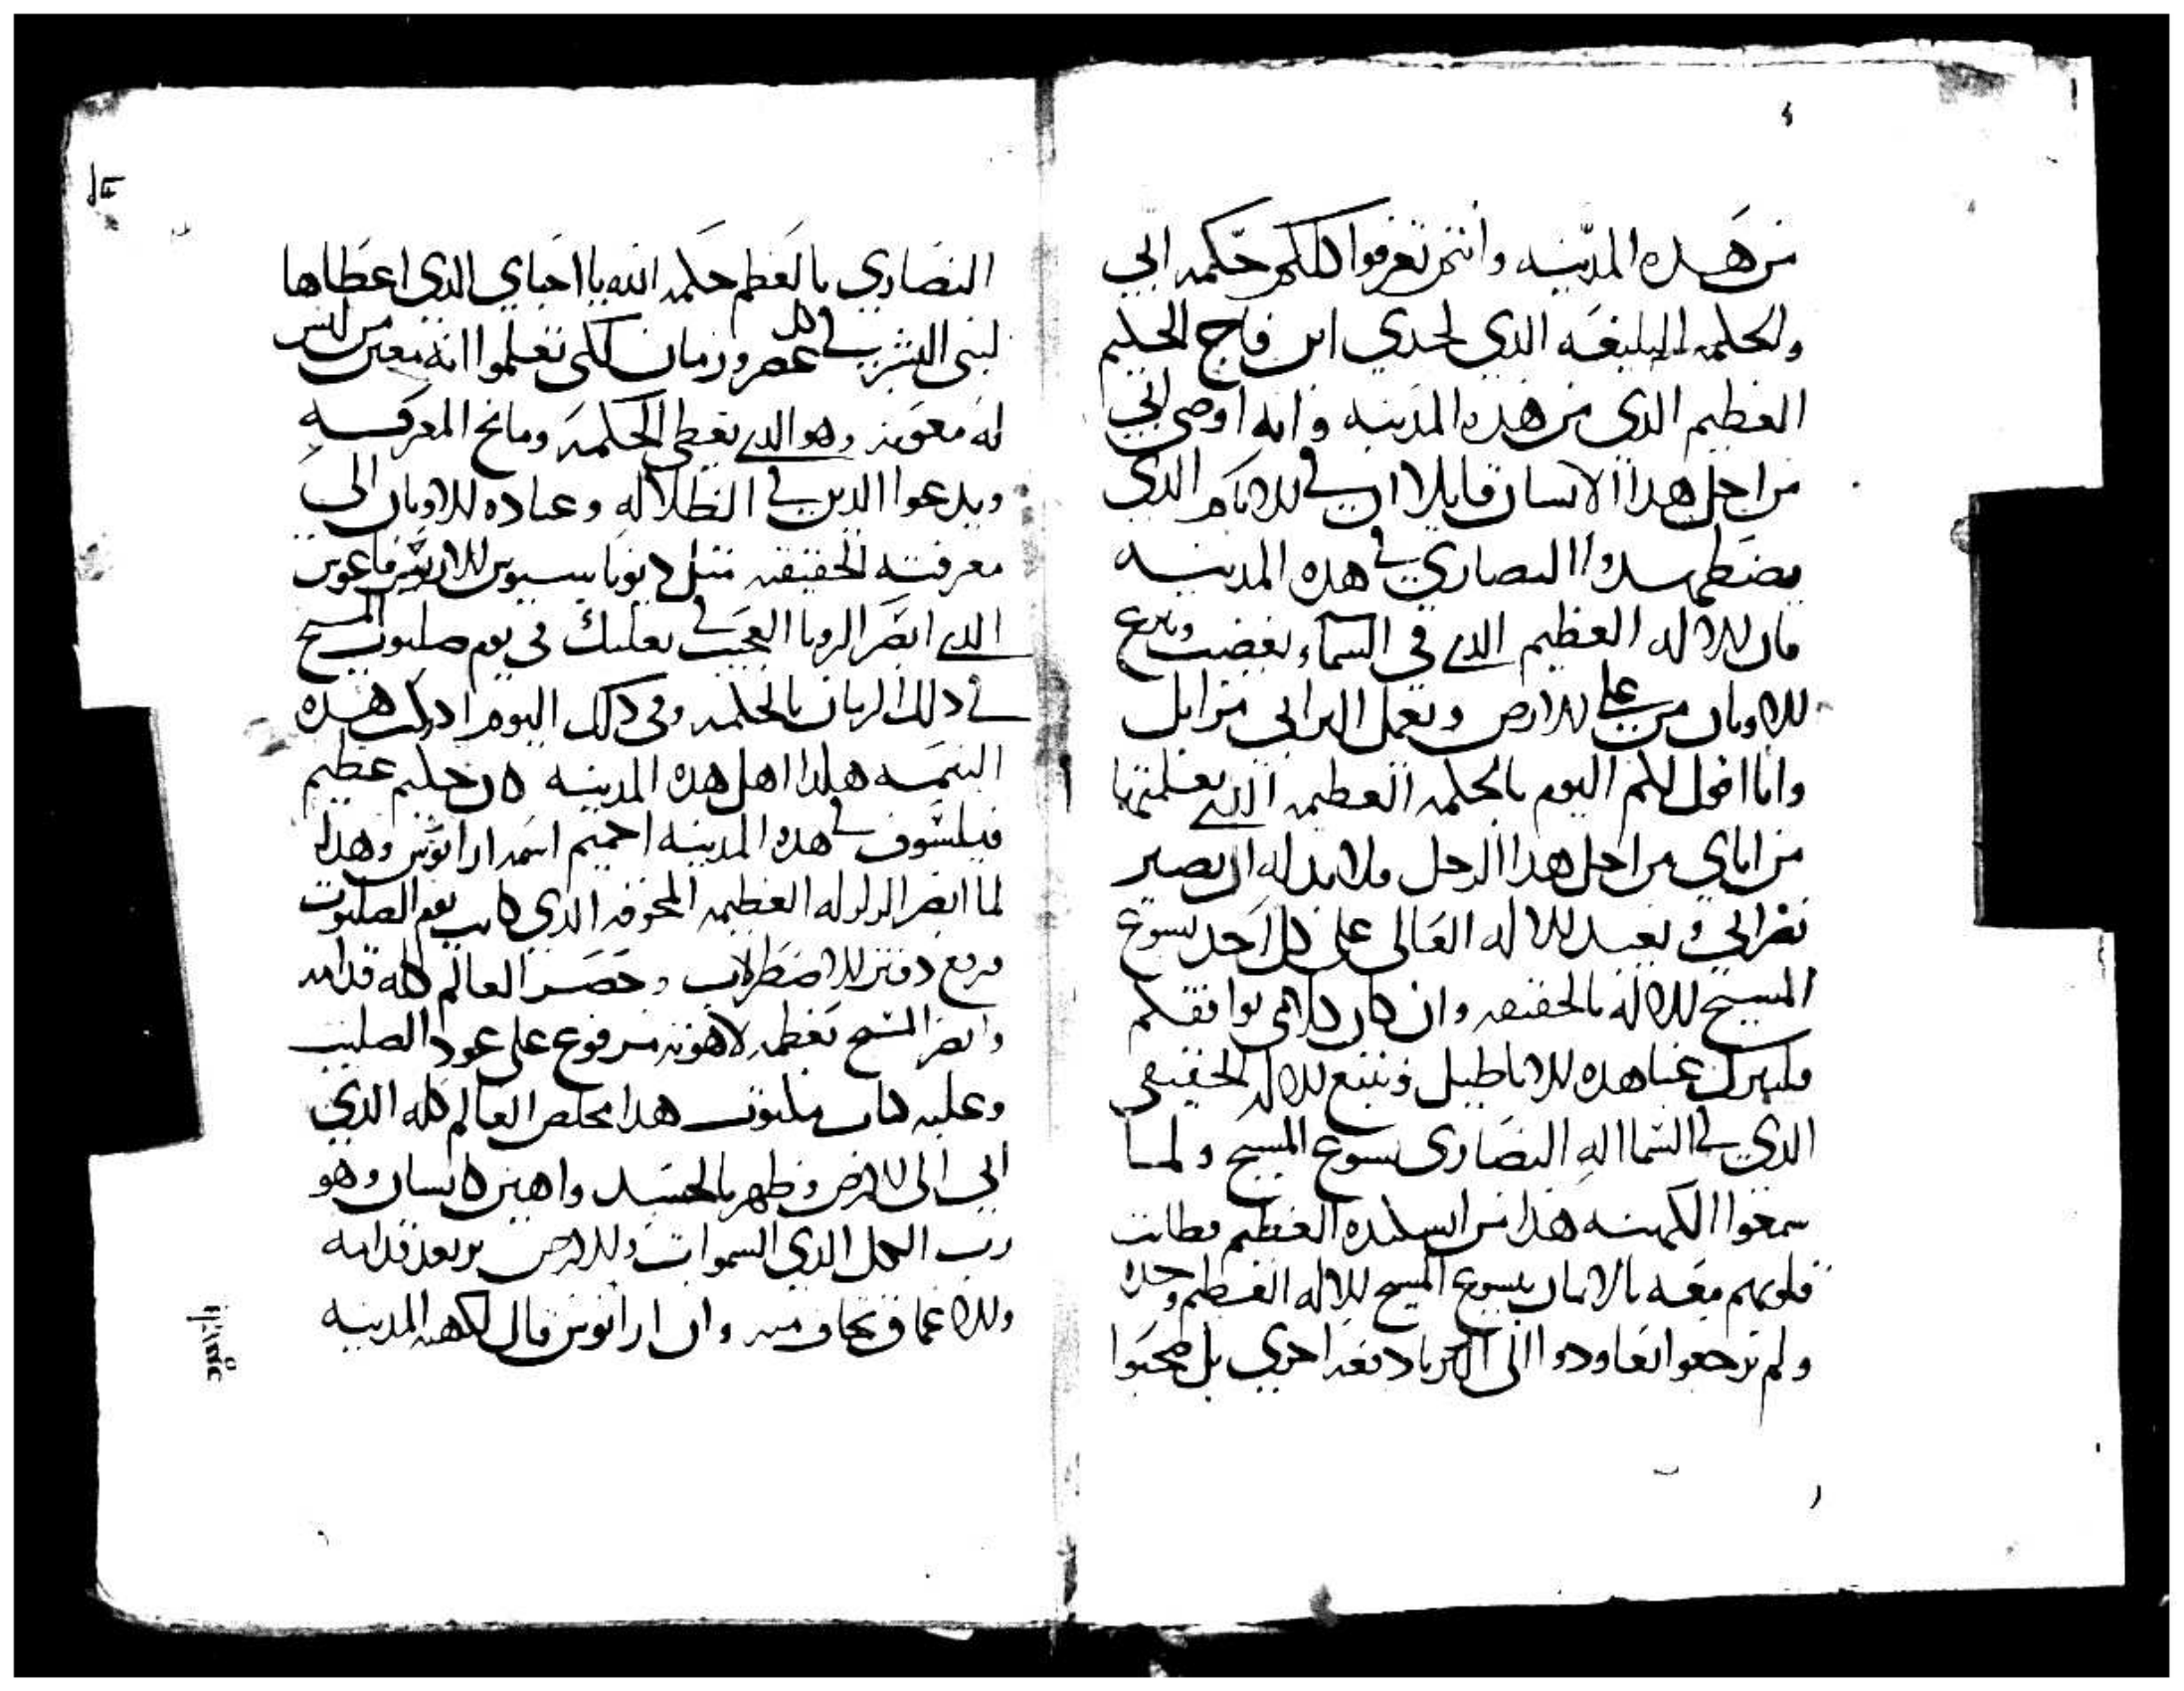 من هده المدينه وانتم تعرفوا كلكم حكمه ابي
والحكمه البليغه الدي لجدي ابن فاج الحكيم
العظيم الدي من هده المدينه وانه اوصى ابي
من اجل هدا الانسان قايلا ان في الايام الدي
يضطهدوا النصاري في هده المدينه
فان الاله العظيم الدي في السماء يغضب وينزع
الاوثان من على الارض وتعمل البرابي مزابل
وانا اقول لكم اليوم بالحكمه العظيمه الدي تعلمتها
من اباي من اجل هدا الرجل فلا بد له ان يصير
نصراني ويعبد الاله العالي على كل احد يسوع
المسيح الاله بالحقيقه وان كان كلامي يوافقكم
فلنترك عنا هده الاباطيل ونتبع الاله الحقيقي
الدي في السما اله النصارى يسوع المسيح ولما
سمعوا الكهنه هدا من السيده العظيم فطابت
قلوبهم معه بالايمان بيسوع المسيح الاله العظيم وحده
ولم يرجعوا يعاودوا الى البربا دفعه اخري بل صحبوا
النصاري يا لعظم حكمه الله يا احباي الدي اعطاها
لبني البشر في كل عصر وزمان لكي تعلموا انه معين من ليس
له معونه وهو الدي يعطي الحكمه ومانح المعرفه
ويدعوا الدين في الظلاله وعباده الاوثان الى
معرفته الحقيقيه متل ديوناسيوس الاريوس فاغوس
الدي ابصر الرويا العجيب في بعلبك في يوم صلبوت المسيح
في دلك الزمان بالحكمه وفي دلك اليوم ادركت هده
النعمه هكدا اهل هده المدينه كان حكيم عظيم
فيلسوف في هده المدينه احميم اسمه اراتوس وهدا
لما ابصر الزلزله العظيمه المخوفه الدي كانت يوم الصلبوت
فرفع دفتر الاضطرلاب وحضر العالم كله قدامه
وابصر المسيح بعظمه لاهوته مرفوع على عود الصليب
وعليه كتاب مكتوب هدا مخلص العالم كله الدي
اتى الى الارض وظهر بالجسد واهين كانسان وهو
رب الكل الدي السموات والارض يرتعد قدامه
والاعماق تخاف منه وان اراتوس قال لكهنه المدينه